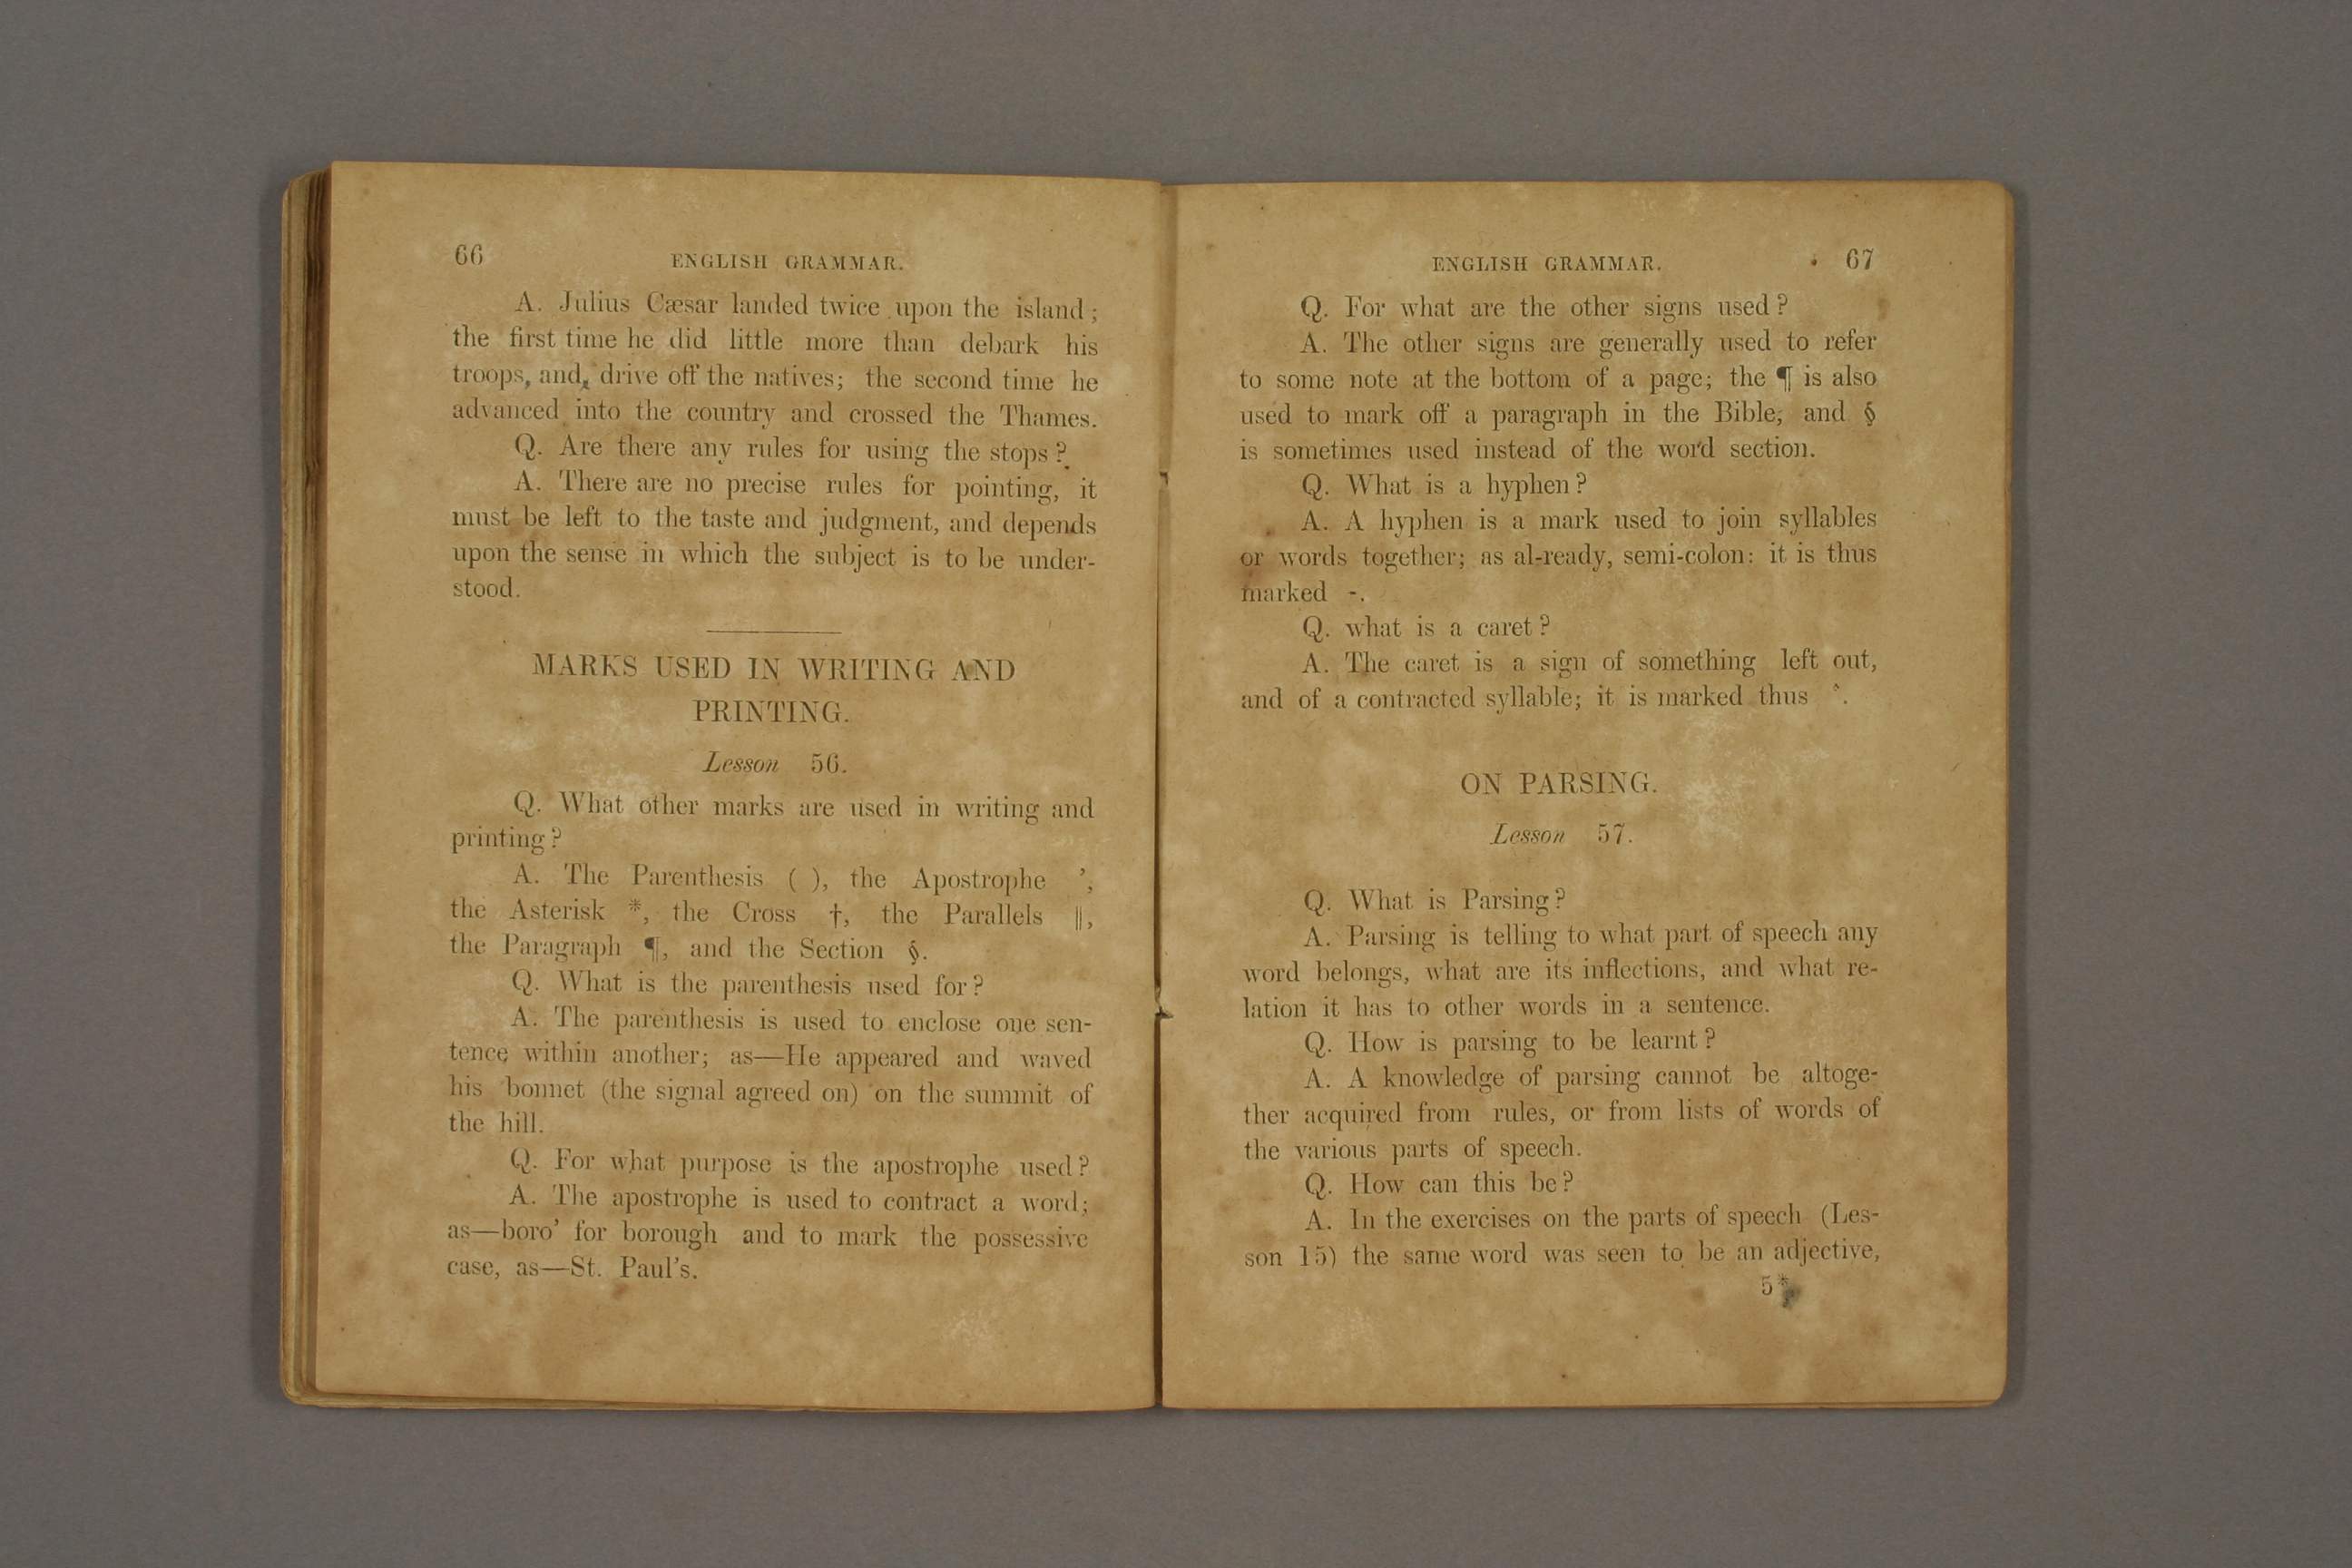 66 ENGLISH GRAMMAR.
A. Julius Cæsar landed twice upon the island;
the first time he did little more than debark his
troops, and, drive off the natives; the second time he
advanced into the country and crossed the Thames.
Q. Are there any rules for using the stops?
A. There are no precise rules for pointing, it
must be left to the taste and judgment, and depends
upon the sense in which the subject is to be under-
stood.
MARKS USED IN WRITING AND
PRINTING.
Lesson 56.
Q. What other marks are used in writing and
printing?
A. The Parenthesis ( ), the Apostrophe ’,
the Asterisk *, the Cross †, the Parallels ‖,
the Paragraph ¶, and the Section §.
Q. What is the parenthesis used for?
A. The parenthesis is used to enclose one sen-
tence within another; as—He appeared and waved
his bonnet (the signal agreed on) on the summit of
the hill.
Q. For what purpose is the apostrophe used?
A. The apostrophe is used to contract a word;
as—boro’ for borough and to mark the possessive
case, as—St. Paul’s.
ENGLISH GRAMMAR. 67
Q. For what are the other signs used?
A. The other signs are generally used to refer
to some note at the bottom of a page; the ¶ is also
used to mark off a paragraph in the Bible, and §
is sometimes used instead of the word section.
Q. What is a hyphen?
A. A hyphen is a mark used to join syllables
or words together; as al-ready, semi-colon: it is thus
marked -.
Q. what is a caret?
A. The caret is a sign of something left out,
and of a contracted syllable; it is marked thus ^.
ON PARSING.
Lesson 57.
Q. What is Parsing?
A. Parsing is telling to what part of speech any
word belongs, what are its inflections, and what re-
lation it has to other words in a sentence.
Q. How is parsing to be learnt?
A. A knowledge of parsing cannot be altoge-
ther acquired from rules, or from lists of words of
the various parts of speech.
Q. How can this be?
A. In the exercises on the parts of speech (Les-
son 15) the same word was seen to be an adjective,
5*